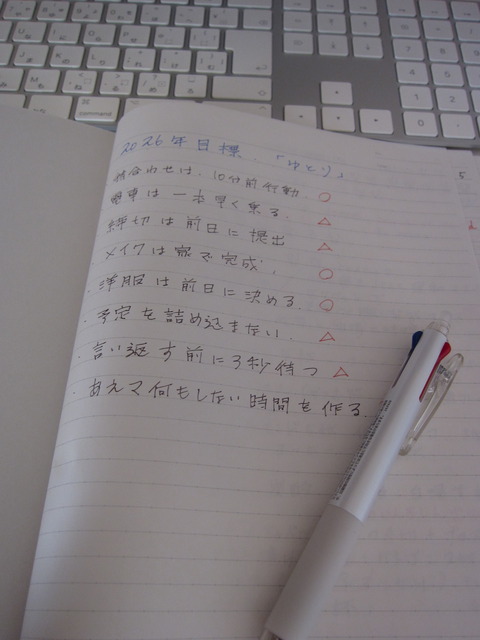 command
2026年目標.「ゆとり」
・待合わせは、10分前行動 ○
・電車は一本早く乗る. △
・締切は前日に提出 △
・メイクは家で完成. ○
・洋服は前日に決める. ○
・予定を詰め込まない. △
・言い返す前に3秒待つ △
・あえて何もしない時間を作る.